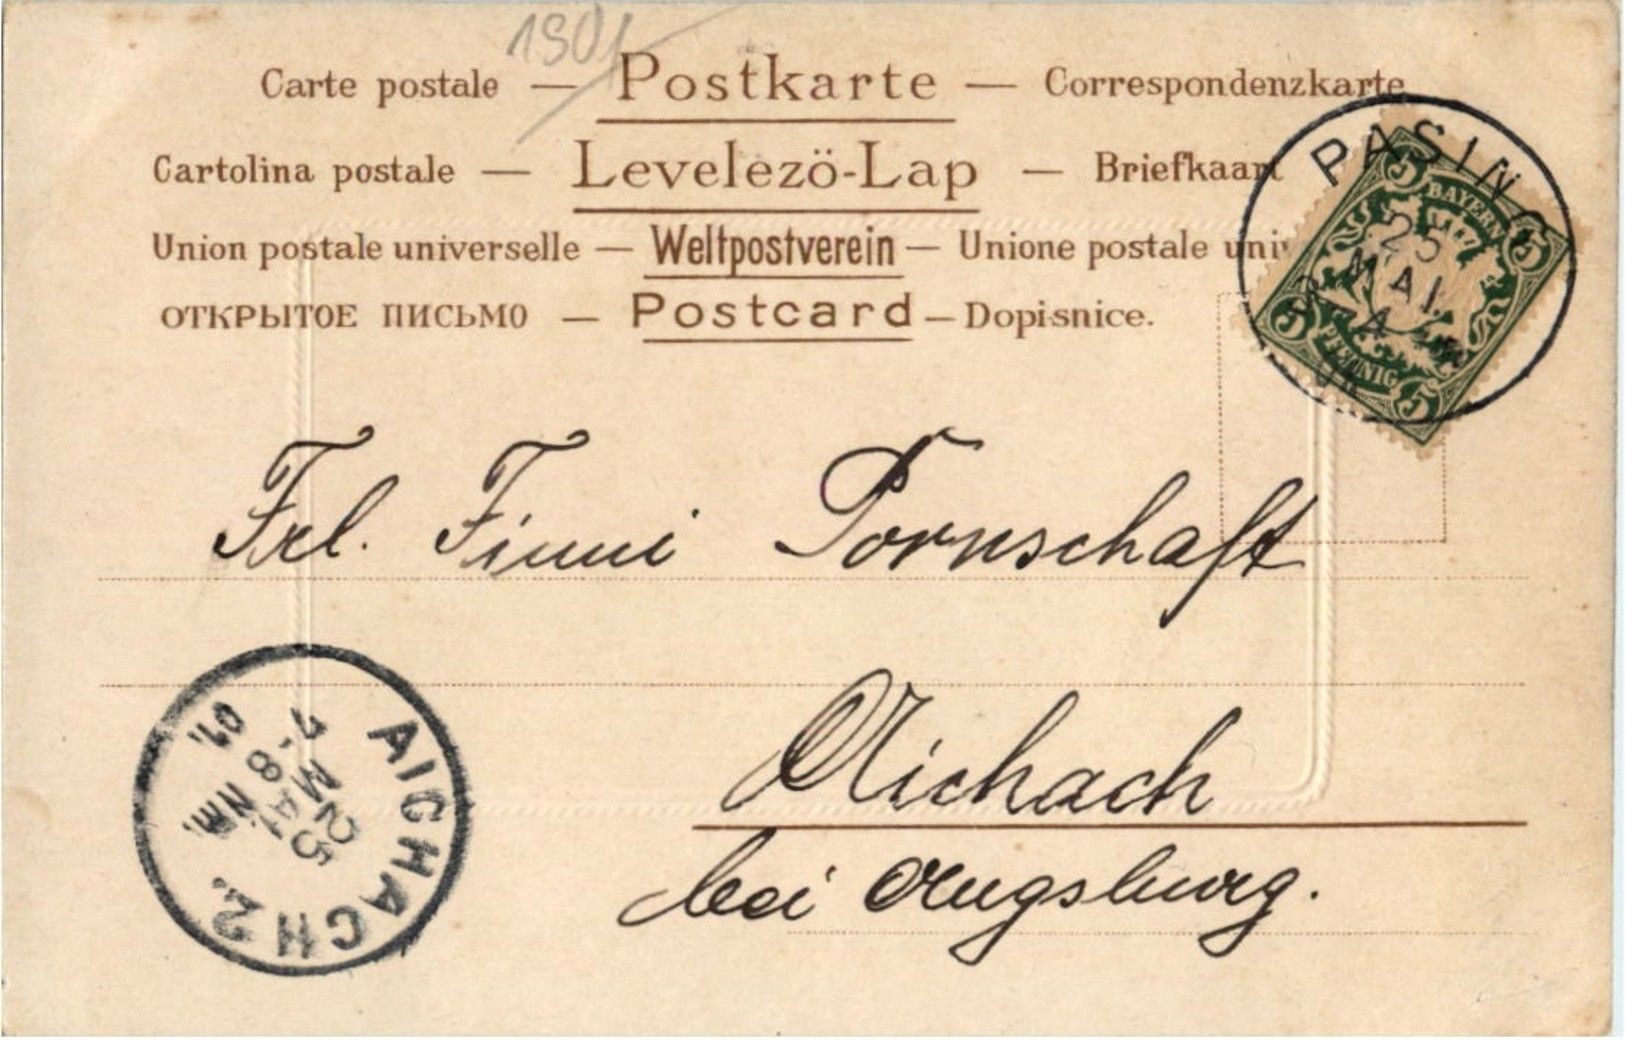 1901
Carte postale — Postkarte — Correspondenzkarte
Cartolina postale — Levelezö-Lap — Briefkaart
Union postale universelle — Weltpostverein — Unione postale uni
ОТКРЫТОЕ ПИСЬМО — Postcard — Dopisnice.
PASING
25
MAI.
BAYERN
5 5 5 5
PFENNIG
Frl. Finni Pornschaft
Aichach
bei Augsburg.
AICHACH 2.
25
MAI
7-8 Nm.
01.